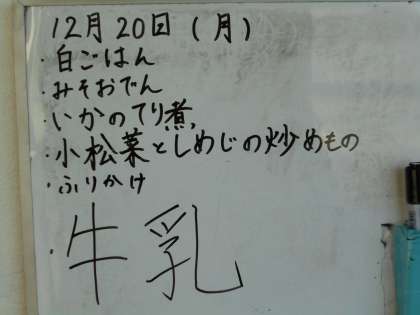 12月20日(月)
・白ごはん
・みそおでん
・いかのてり煮
・小松菜としめじの炒めもの
・ふりかけ
・牛乳